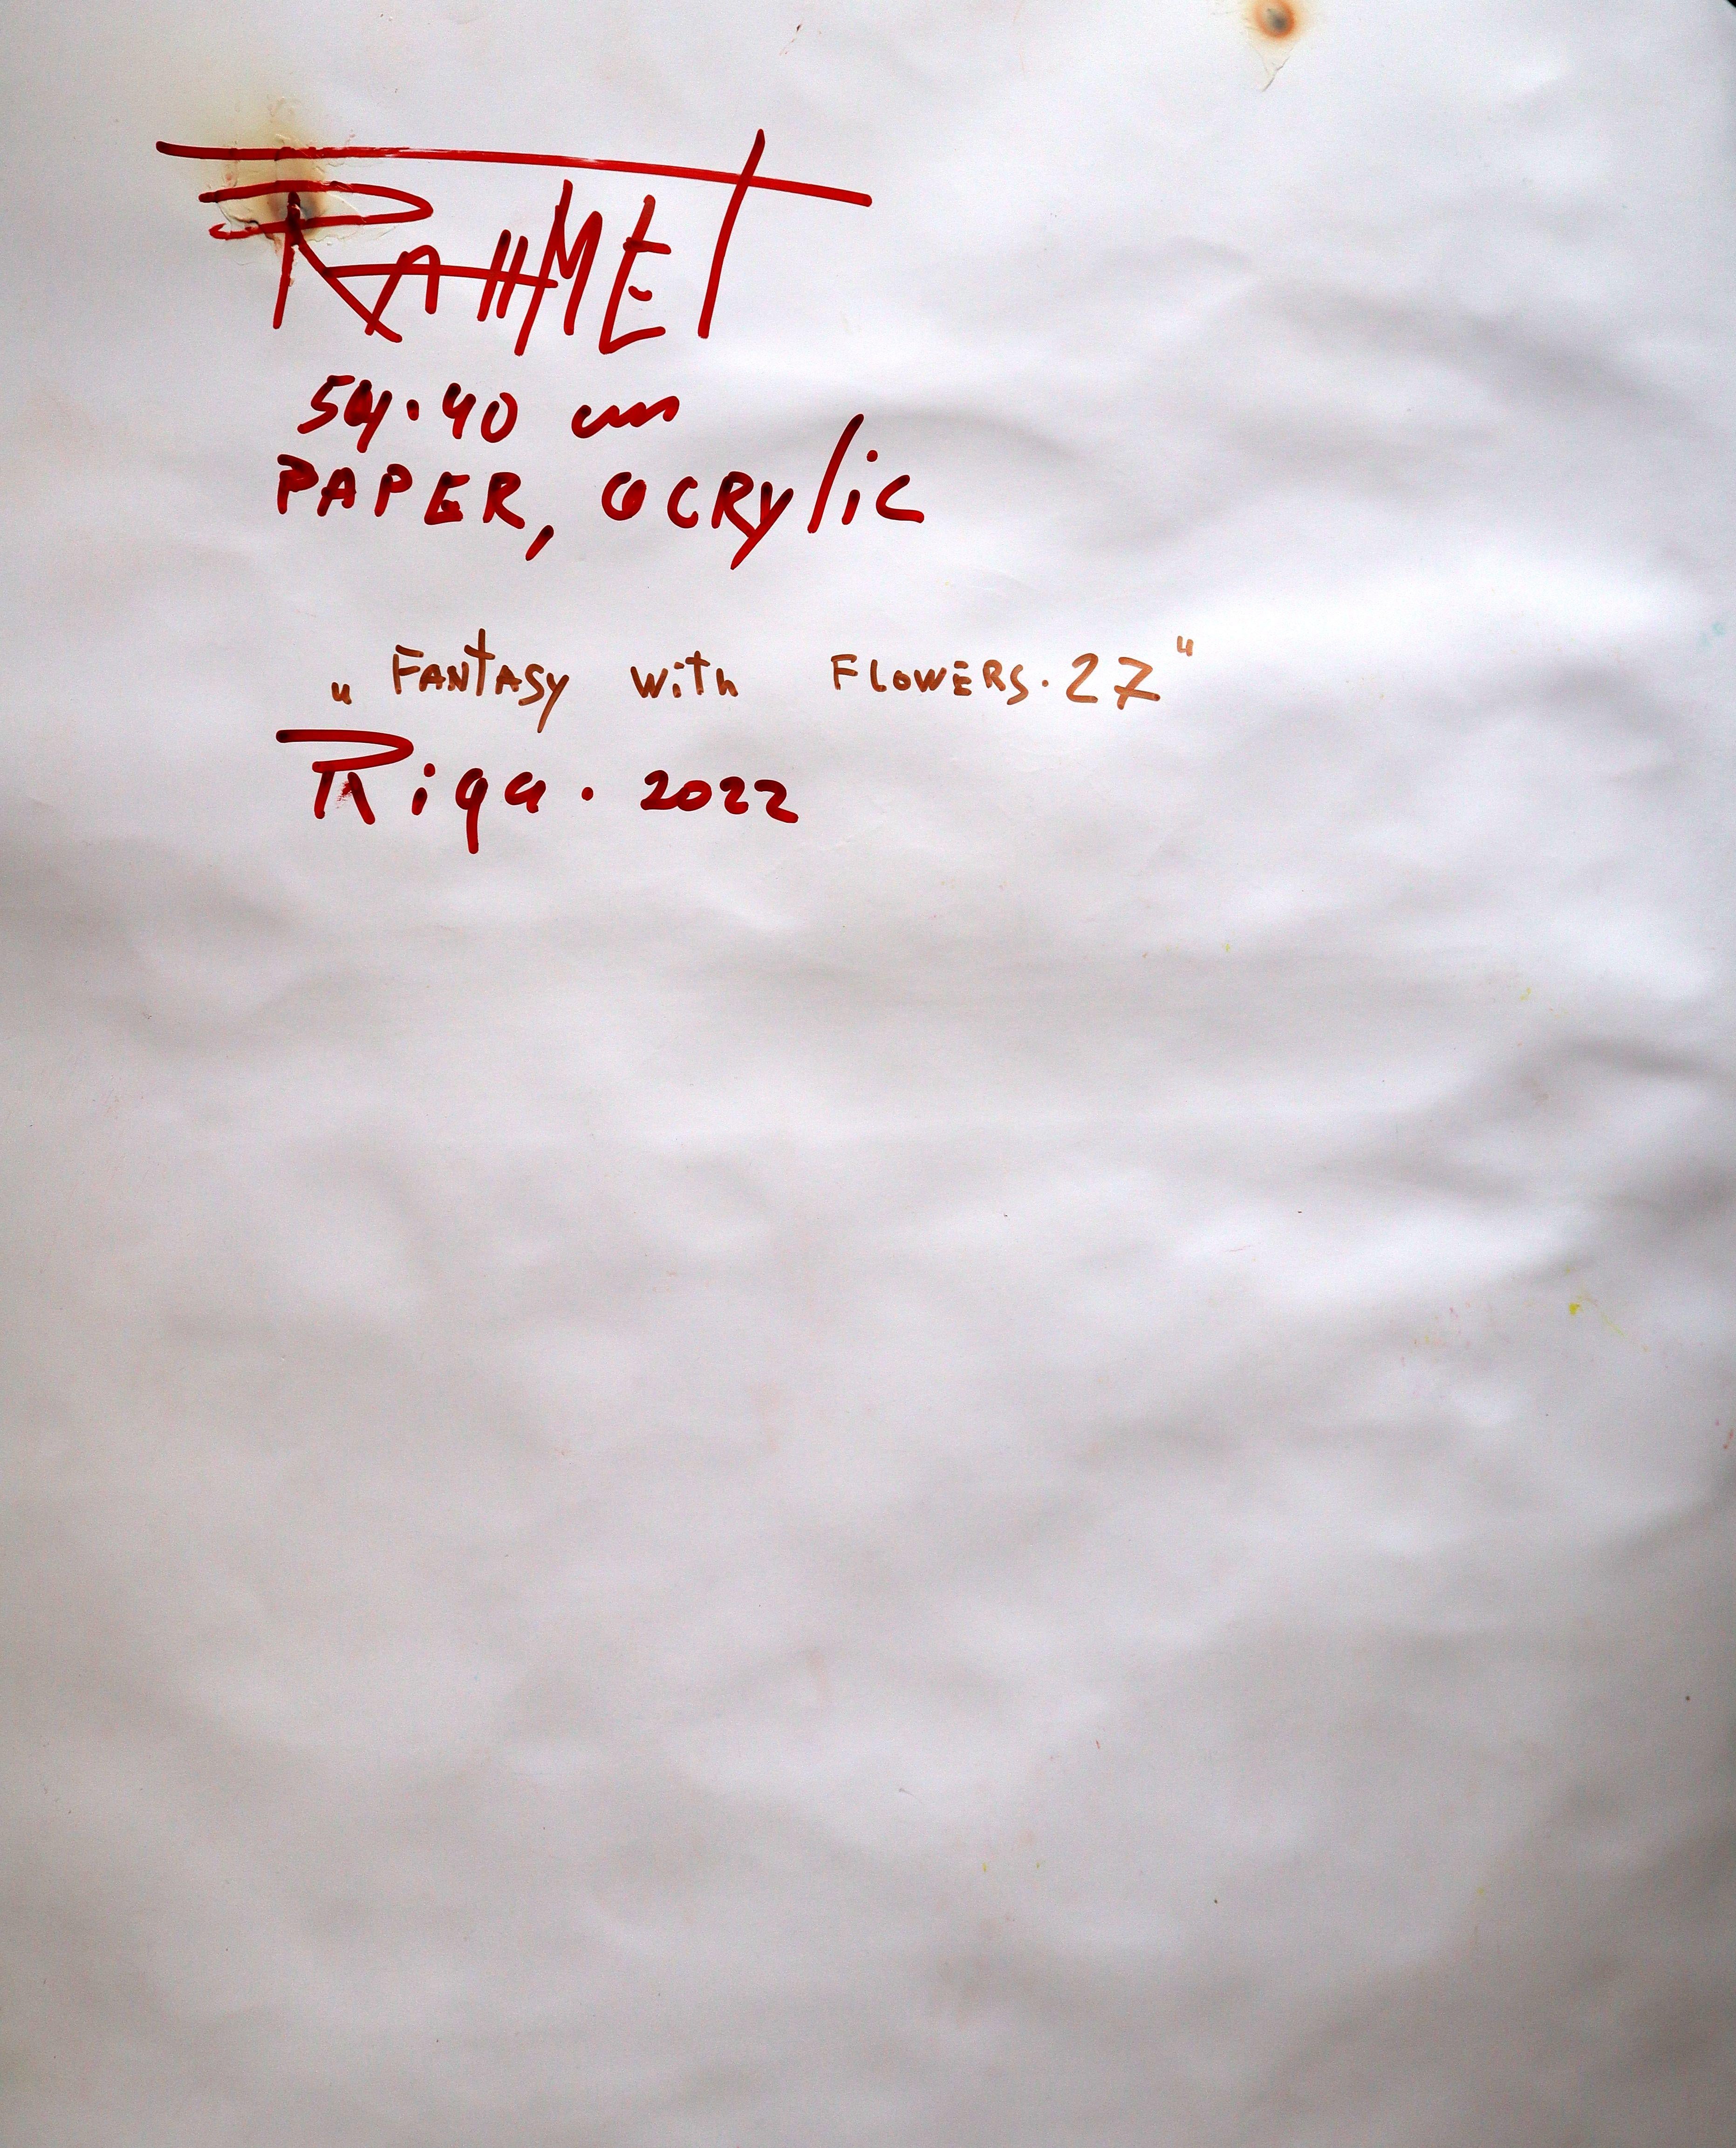 RAHMET
54.40 cm
PAPER, acrylic
„Fantasy with Flowers.27"
Riga. 2022